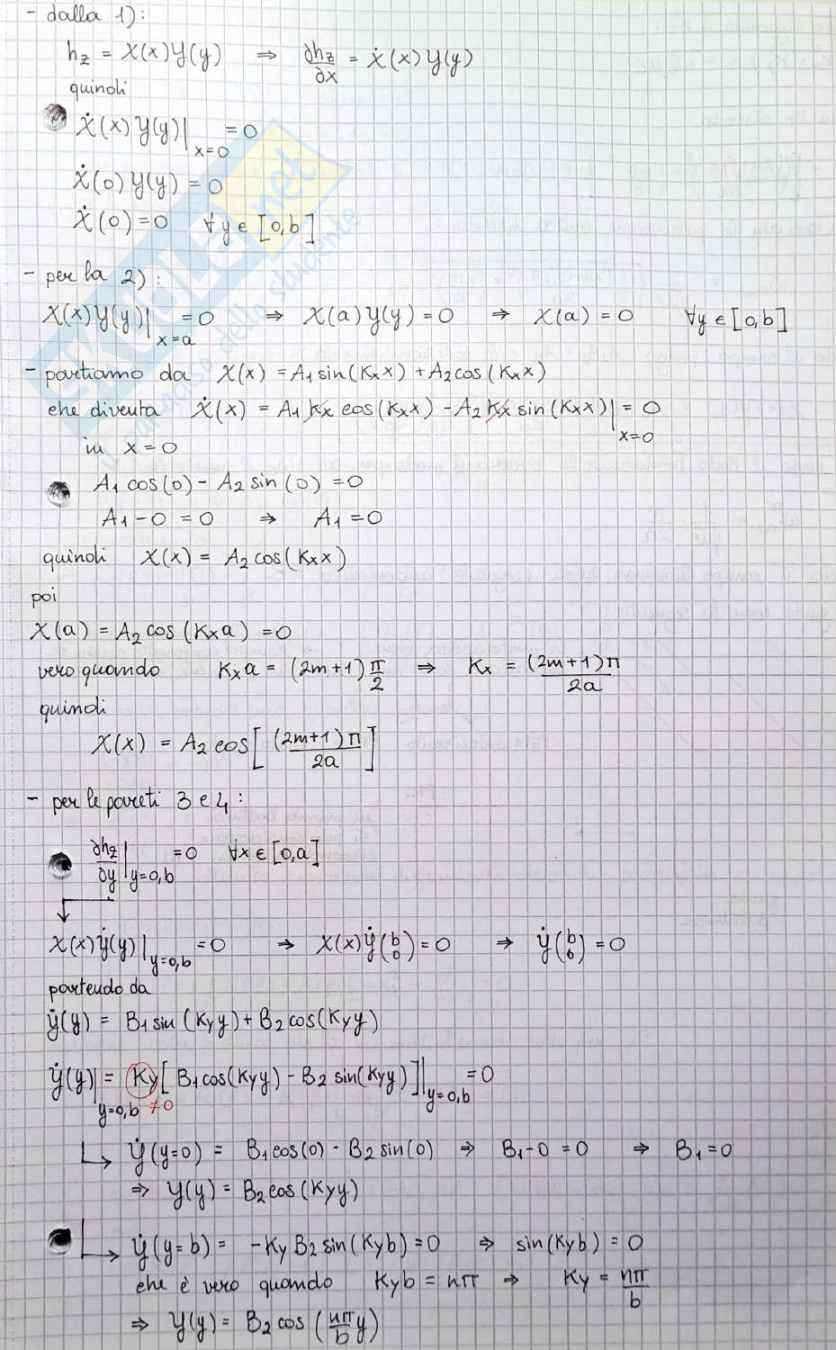 - dalla 1):
h_z = X(x)Y(y) ⇒ ∂h_z/∂x = Ẋ(x)Y(y)
quindi
Ẋ(x)Y(y)|_{x=0} = 0
Ẋ(0)Y(y) = 0
Ẋ(0) = 0 ∀y ∈ [0,b]
- per la 2):
X(x)Y(y)|_{x=a} = 0 ⇒ X(a)Y(y) = 0 ⇒ X(a) = 0 ∀y ∈ [0,b]
- partiamo da X(x) = A₁ sin(Kₓx) + A₂ cos(Kₓx)
che diventa Ẋ(x) = A₁ Kₓ cos(Kₓx) - A₂ Kₓ sin(Kₓx)|_{x=0} = 0
in x = 0
A₁ cos(0) - A₂ sin(0) = 0
A₁ - 0 = 0 ⇒ A₁ = 0
quindi X(x) = A₂ cos(Kₓx)
poi
X(a) = A₂ cos(Kₓa) = 0
vero quando Kₓa = (2m+1) π/2 ⇒ Kₓ = (2m+1)π/2a
quindi
X(x) = A₂ cos[(2m+1)π/2a]
- per le pareti 3 e 4:
∂h_z/∂y|_{y=0,b} = 0 ∀x ∈ [0,a]
X(x)Ẏ(y)|_{y=0,b} = 0 ⇒ X(x)Ẏ(b 0) = 0 ⇒ Ẏ(b 0) = 0
partendo da
Ẏ(y) = B₁ sin(K_y y) + B₂ cos(K_y y)
Ẏ(y)|_{y=0,b} = K_y [B₁ cos(K_y y) - B₂ sin(K_y y)]|_{y=0,b} = 0
≠0
Ẏ(y=0) = B₁ cos(0) - B₂ sin(0) ⇒ B₁ - 0 = 0 ⇒ B₁ = 0
⇒ Y(y) = B₂ cos(K_y y)
Ẏ(y=b) = -K_y B₂ sin(K_y b) = 0 ⇒ sin(K_y b) = 0
che è vero quando K_y b = nπ ⇒ K_y = nπ/b
⇒ Y(y) = B₂ cos(nπ/b y)
skuola.net
il paradiso dello studente